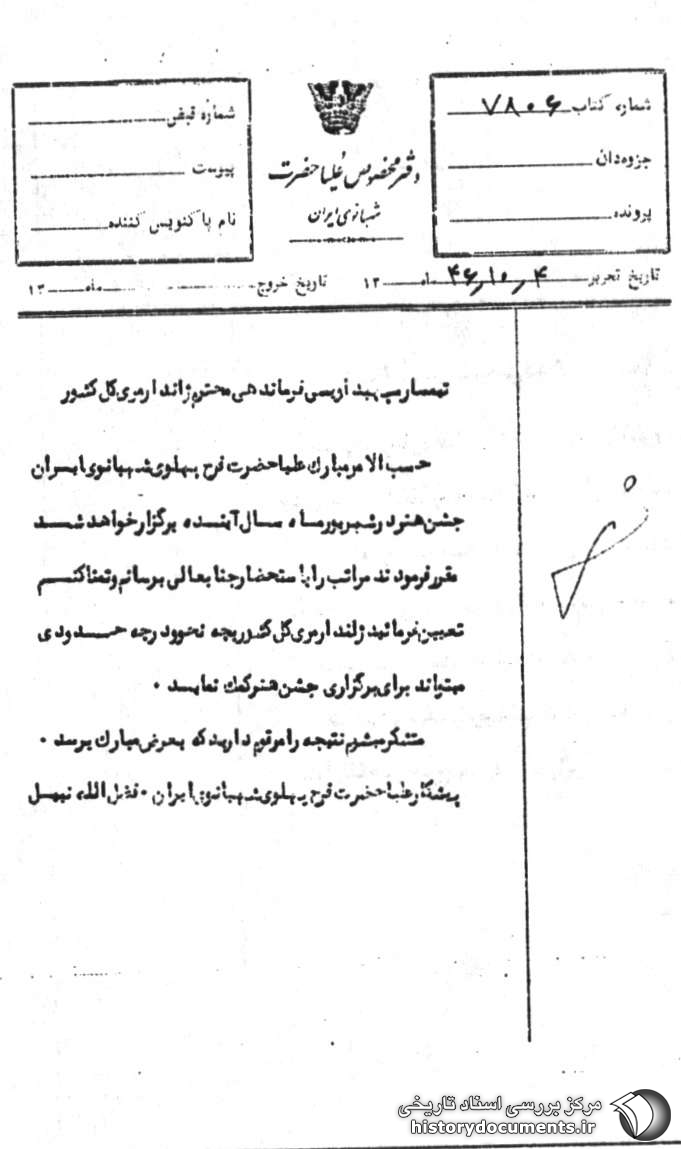 شماره کتاب ۷۸۰۶
جزوه‌دان
پرونده
دفتر مخصوص علیاحضرت
شهبانوی ایران
شماره قبض
پیوست
نام پاکنویس کننده
تاریخ تحریر ۴ ر ۱۰ ر ۴۶ ماه ۱۳ تاریخ خروج ماه ۱۳
تیمسار سپهبد اویسی فرماندهی محترم ژاندارمری کل کشور
حسب الامر مبارك علیاحضرت فرح پهلوی شهبانوی ایران
جشن هنر در شهریور ماه سال آینده برگزار خواهد شد
مقرر فرمودند مراتب را با ستحضار جنابعالی برسانم و تمنا کنم
تعیین فرمائید ژاندارمری کل کشور بچه نحو و در چه حدودی
میتواند برای برگزاری جشن هنر کمك نماید ۰
متشکر میشوم نتیجه را مرقوم دارید که بعرض مبارك برسد ۰
پیشکار علیاحضرت فرح پهلوی شهبانوی ایران ۰ فضل الله نبیل
مرکز بررسی اسناد تاریخی
historydocuments.ir